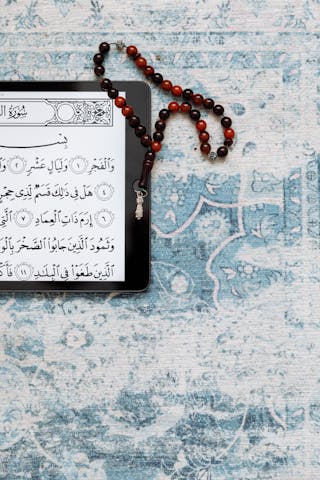 سُورَةُ
بِسْمِ
وَالْفَجْرِ ١ وَلَيَالٍ عَشْرٍ ٢
٤ هَلْ فِي ذَٰلِكَ قَسَمٌ لِّذِي حِجْرٍ
٦ إِرَمَ ذَاتِ الْعِمَادِ ٧ الَّتِي
وَثَمُودَ الَّذِينَ جَابُوا الصَّخْرَ
الَّذِينَ طَغَوْا فِي الْبِلَادِ ١١